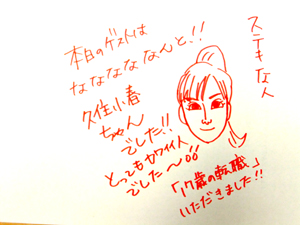 本日のゲストは
なななななんと!!
久住小春
ちゃん
でした!!
とってもカワイイ人
でした〜!!
ステキな人
「17歳の転職」
いただきました!!